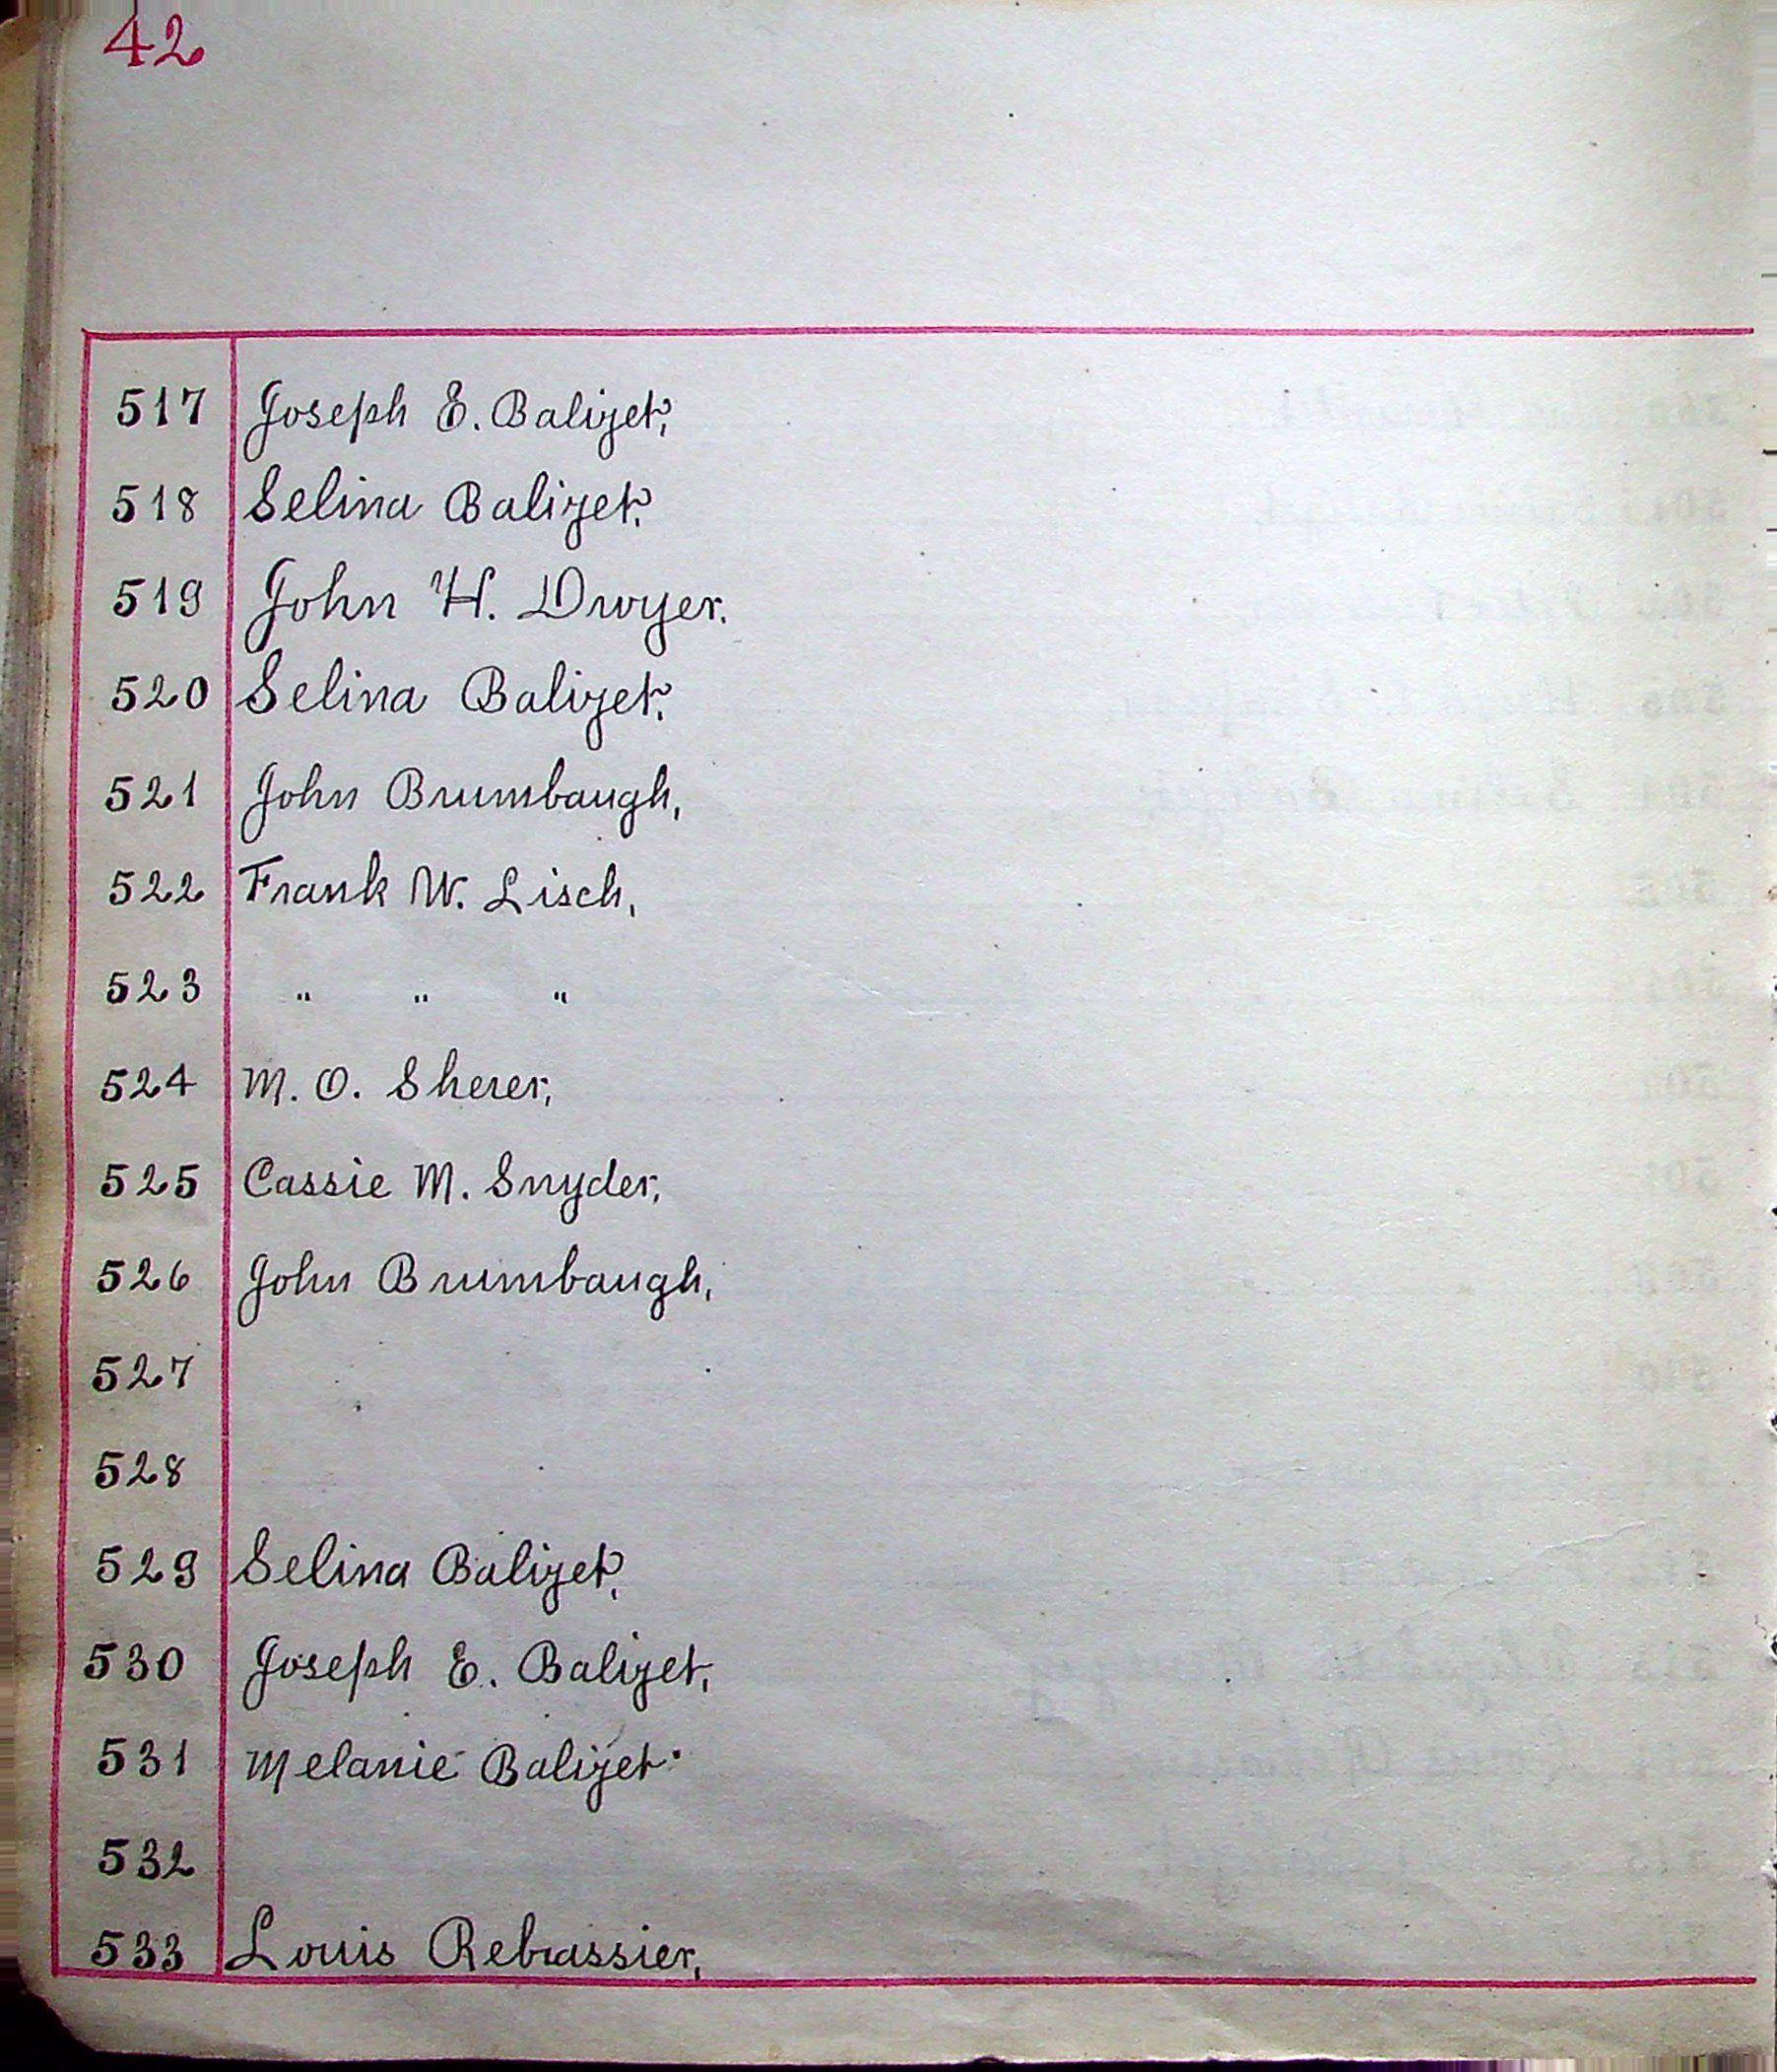 42
517 Joseph E. Balizet,
518 Selina Balizet.
519 John H. Dwyer.
520 Selina Balizet.
521 John Brumbaugh,
522 Frank W. Lisch,
523 " " "
524 M. O. Sherer,
525 Cassie M. Snyder,
526 John Brumbaugh,
527
528
529 Selina Balizet,
530 Joseph E. Balizet,
531 Melanie Balizet.
532
533 Louis Rebrassier,